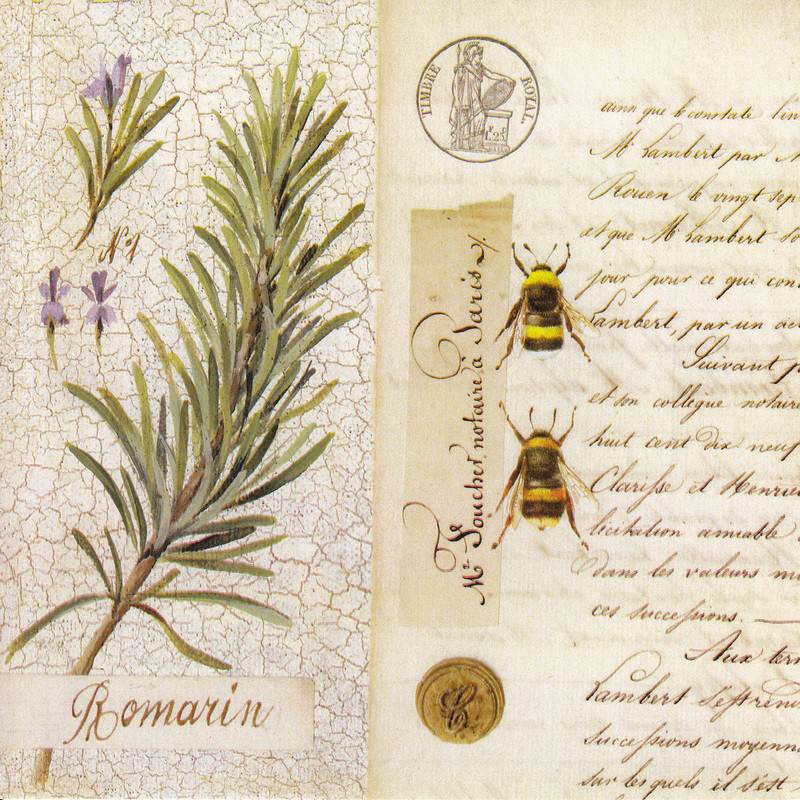 Nº 1
Romarin
TIMBRE ROYAL.
1.25
Mr Foucher notaire à Paris
ainsi que le constate l'in
Mr Lambert par
Rouen le vingt sep
et que Mr Lambert
jour pour ce qui con
Lambert, par un
Suivant p
et son collègue notaire
huit cent dix neuf
Clarisse et Henrie
licitation amiable
dans les valeurs
ces successions.
Aux ter
Lambert
successions moyenn
sur lesquels il s'est